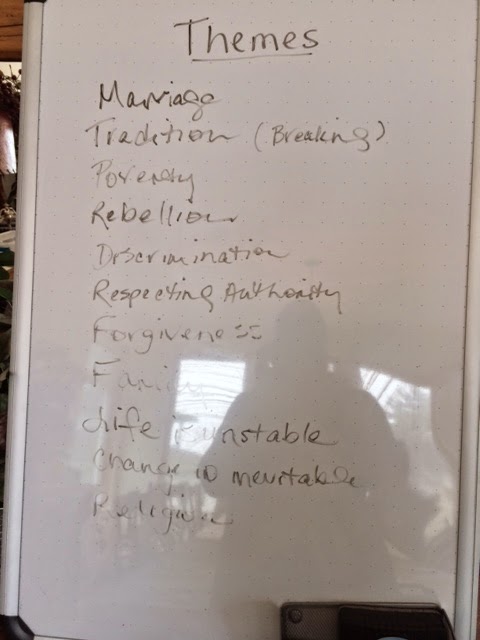 Themes
Marriage
Tradition (Breaking)
Poverty
Rebellion
Discrimination
Respecting Authority
Forgiveness
Family
Life is unstable
Change is inevitable
Religion